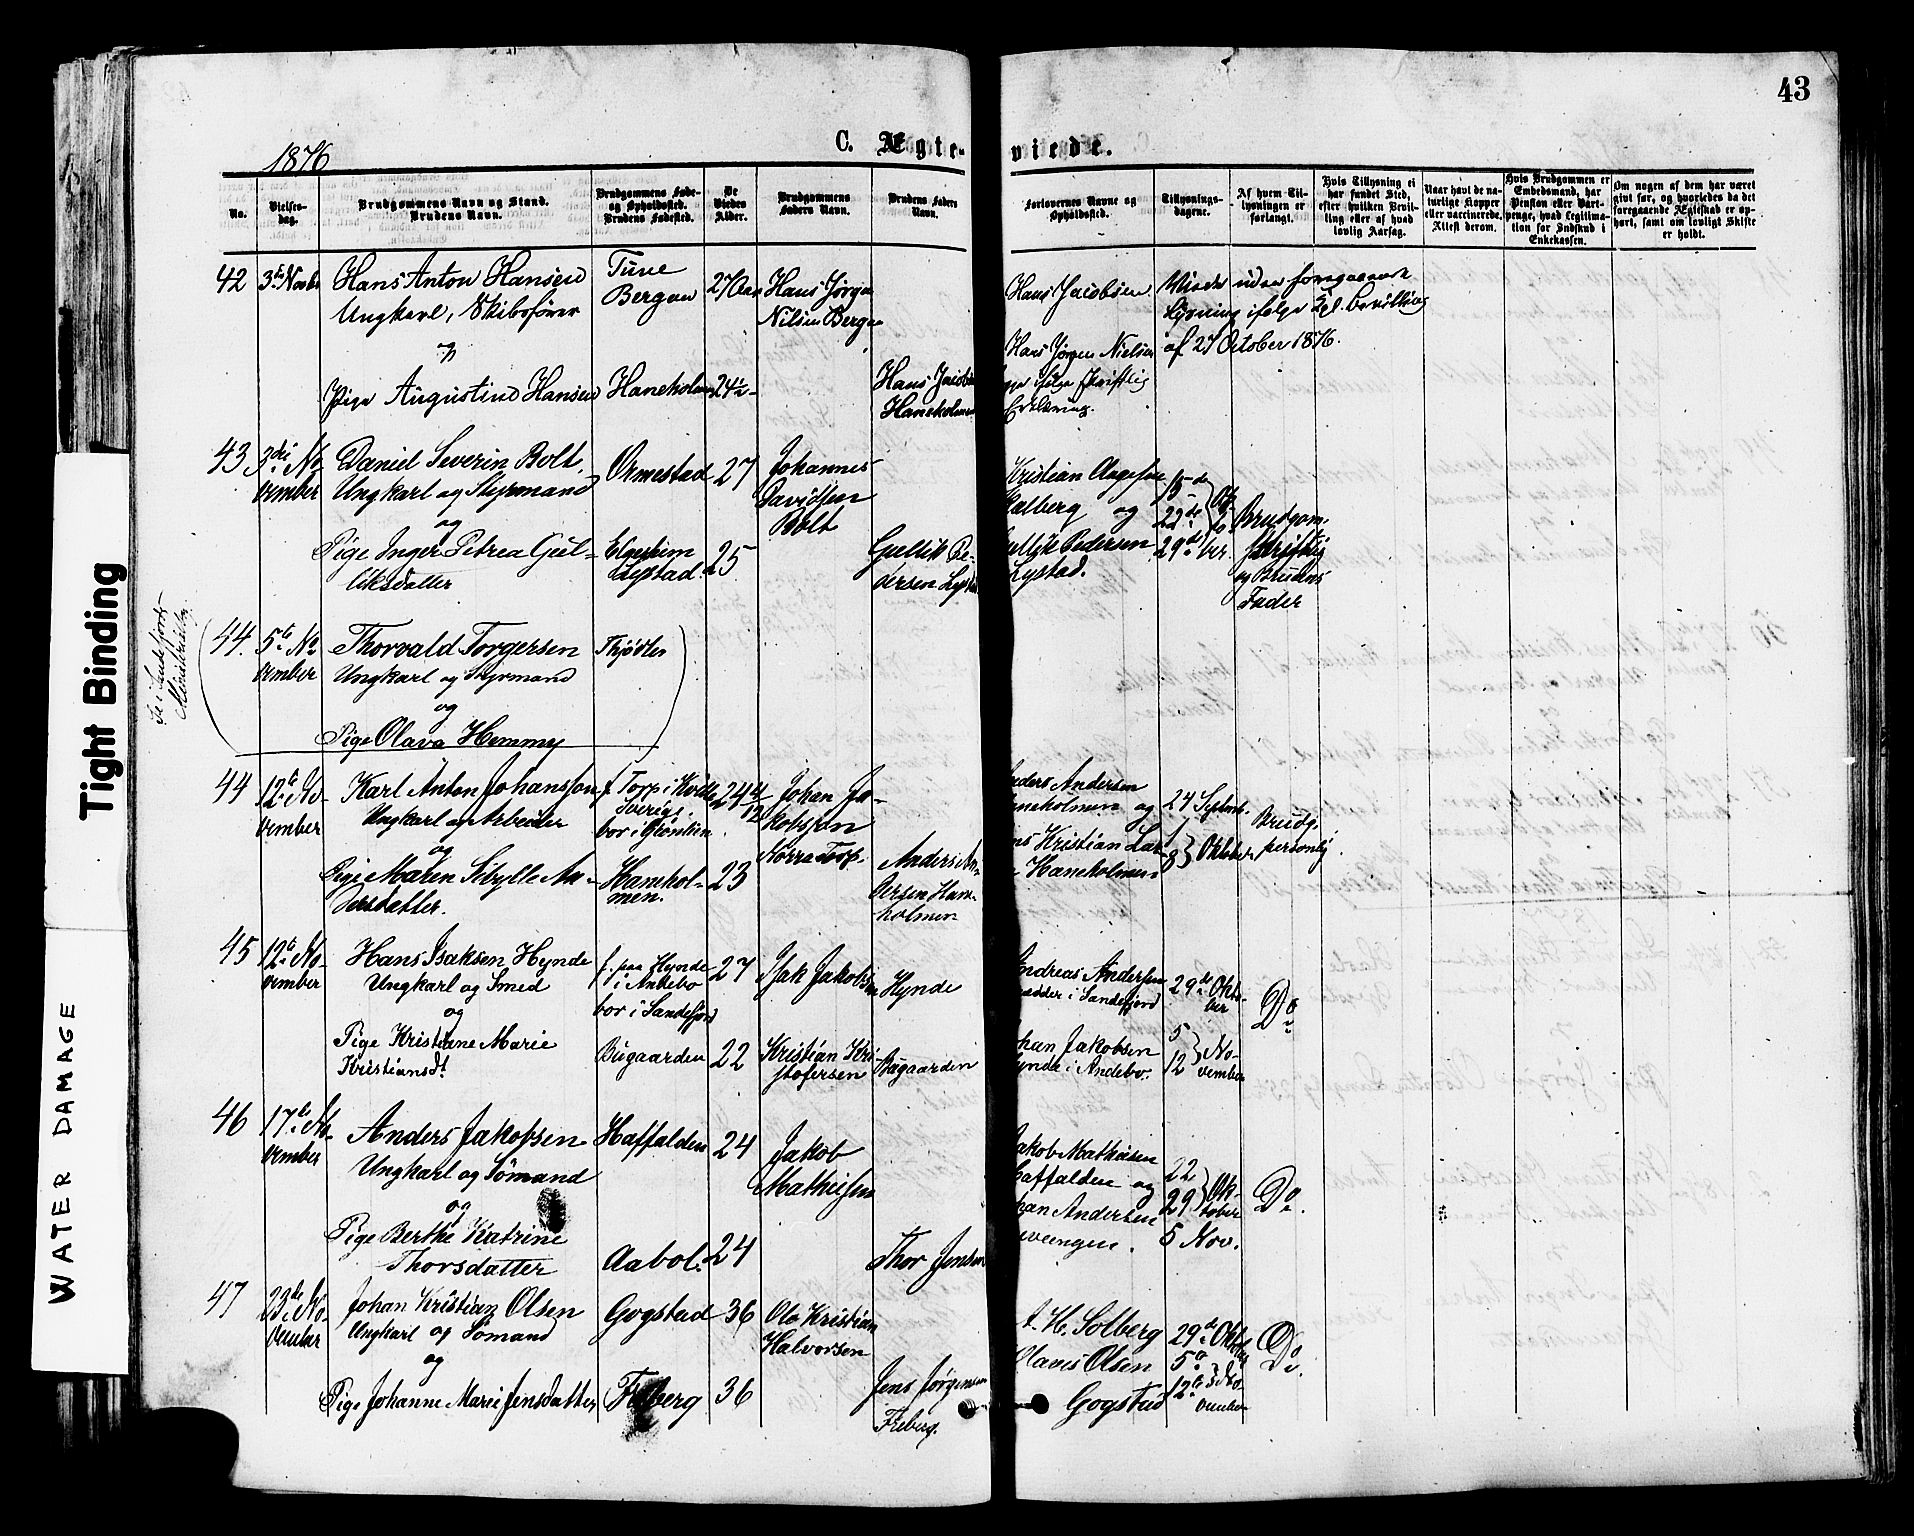 43
C. Ægte-
viede.
1876
No.
Vielses-
dag.
Brudgommens Navn og Stand.
Brudens Navn.
Brudgommens Føde-
og Opholdssted.
Brudens Fødested.
De
Viedes
Alder.
Brudgommens
Faders Navn.
Brudens Faders
Navn.
Forlovernes Navne og
Opholdssted.
Tillysnings-
dagene.
Af hvem Til-
lysningen er
forlangt.
Hvis Tillysning ei
har fundet Sted,
efter hvilken Bevil-
ling eller af hvad
lovlig Aarsag.
Naar havt de na-
turlige Kopper
eller vaccinerede,
Attest derom.
Hvis Brudgommen er
Embedsmand, har
Pension eller Vart-
penge, hvad Legitima-
tion for Indskud i
Enkekassen.
Om nogen af dem har været
gift før, og hvorledes da det
foregaaende Ægteskab er op-
hørt, samt om lovligt Skifte
er holdt.
42
Hans Anton Hansen
Ungkarl, Skibsfører
Pige Augustine Hansen
Tune
Bergan
Haneholmen
27 Aar
24 1/2
Hans Jørgen
Nilsen Bergan
Hans Jacobsen
Haneholmen
Hans Jacobsen
Hans Jørgen Nielsen
ifølge skriftlig
Erklæring.
Viedes uden foregaaende
Lysning ifølge Kgl. bevilling
af 27 October 1876.
43
3die No-
vember
Daniel Severin Bolt,
Ungkarl og Styrmand
og
Pige Inger Petrea Gul-
liksdatter
Ormestad
Lystad.
27
25
Johannes
Davidsen
Bolt
Gullik Pe-
dersen Lystad
Kristian Aagesen
og
Gullik Pedersen
Lystad.
15de
22de
29de
Okto
ber.
Brudgom.
skriftlig
og Brudens
Fader
Se i Sandefjords
44.
5te No
vember
Thorvald Torgersen
Ungkarl og Styrmand
og
Pige Olava Hemmy
Thjødlen
44
12te No-
vember
Karl Anton Johansson
Ungkarl og Arbeider
og
Pige Maren Sibylle An-
dersdatter.
f. Torp i
Sverige
bor i
Hamhol-
men.
24 4/12
23
Johan Ja-
kobsson
Norra Torp.
Anders An-
dersen Ham-
holmen
Anders Andersen
Haneholmen og
Hans Kristian Lar-
Haneholmen
24 Septemb.
1
8 } Oktober
Brudg.
personlig
45
12te No-
vember
Hans Isaksen Hynde
Ungkarl og Smed
og
Pige Kristiane Marie
Kristiansdt.
f. paa Hynde
i Andebo
bor i Sandefjord
Bugaarden
27
22
Isak Jakobsen
Hynde
Kristian Kri-
stofersen
Bugaarden
Andreas Andersen
i Sandefjord
Johan Jakobsen
Hynde i Andebo.
29de Okto-
ber
5
12 } No-
vember
Do
46
17de No-
vember
Anders Jakobsen
Ungkarl og Sømand
og
Pige Berthe Katrine
Thorsdatter
Haffalden
Aabol.
24
24
Jakob
Mathiesen
Thor Jensen
Jakob Mathiesen
Haffalden og
Johan Andersen
22
29 } Ok-
tober
5 Nov.
Do.
47
23de No-
vember
Johan Kristian Olsen
Ungkarl og Sømand
og
Pige Johanne Marie Jensdatter
Gogstad
Freberg
36
36
Ole Kristian
Halvorsen
Jens Jørgensen
Freberg.
A. H. Solberg
Olaves Olsen
Gogstad
29de Oktober
5te
12te No-
vember
Do.
Tight Binding
WATER DAMAGE